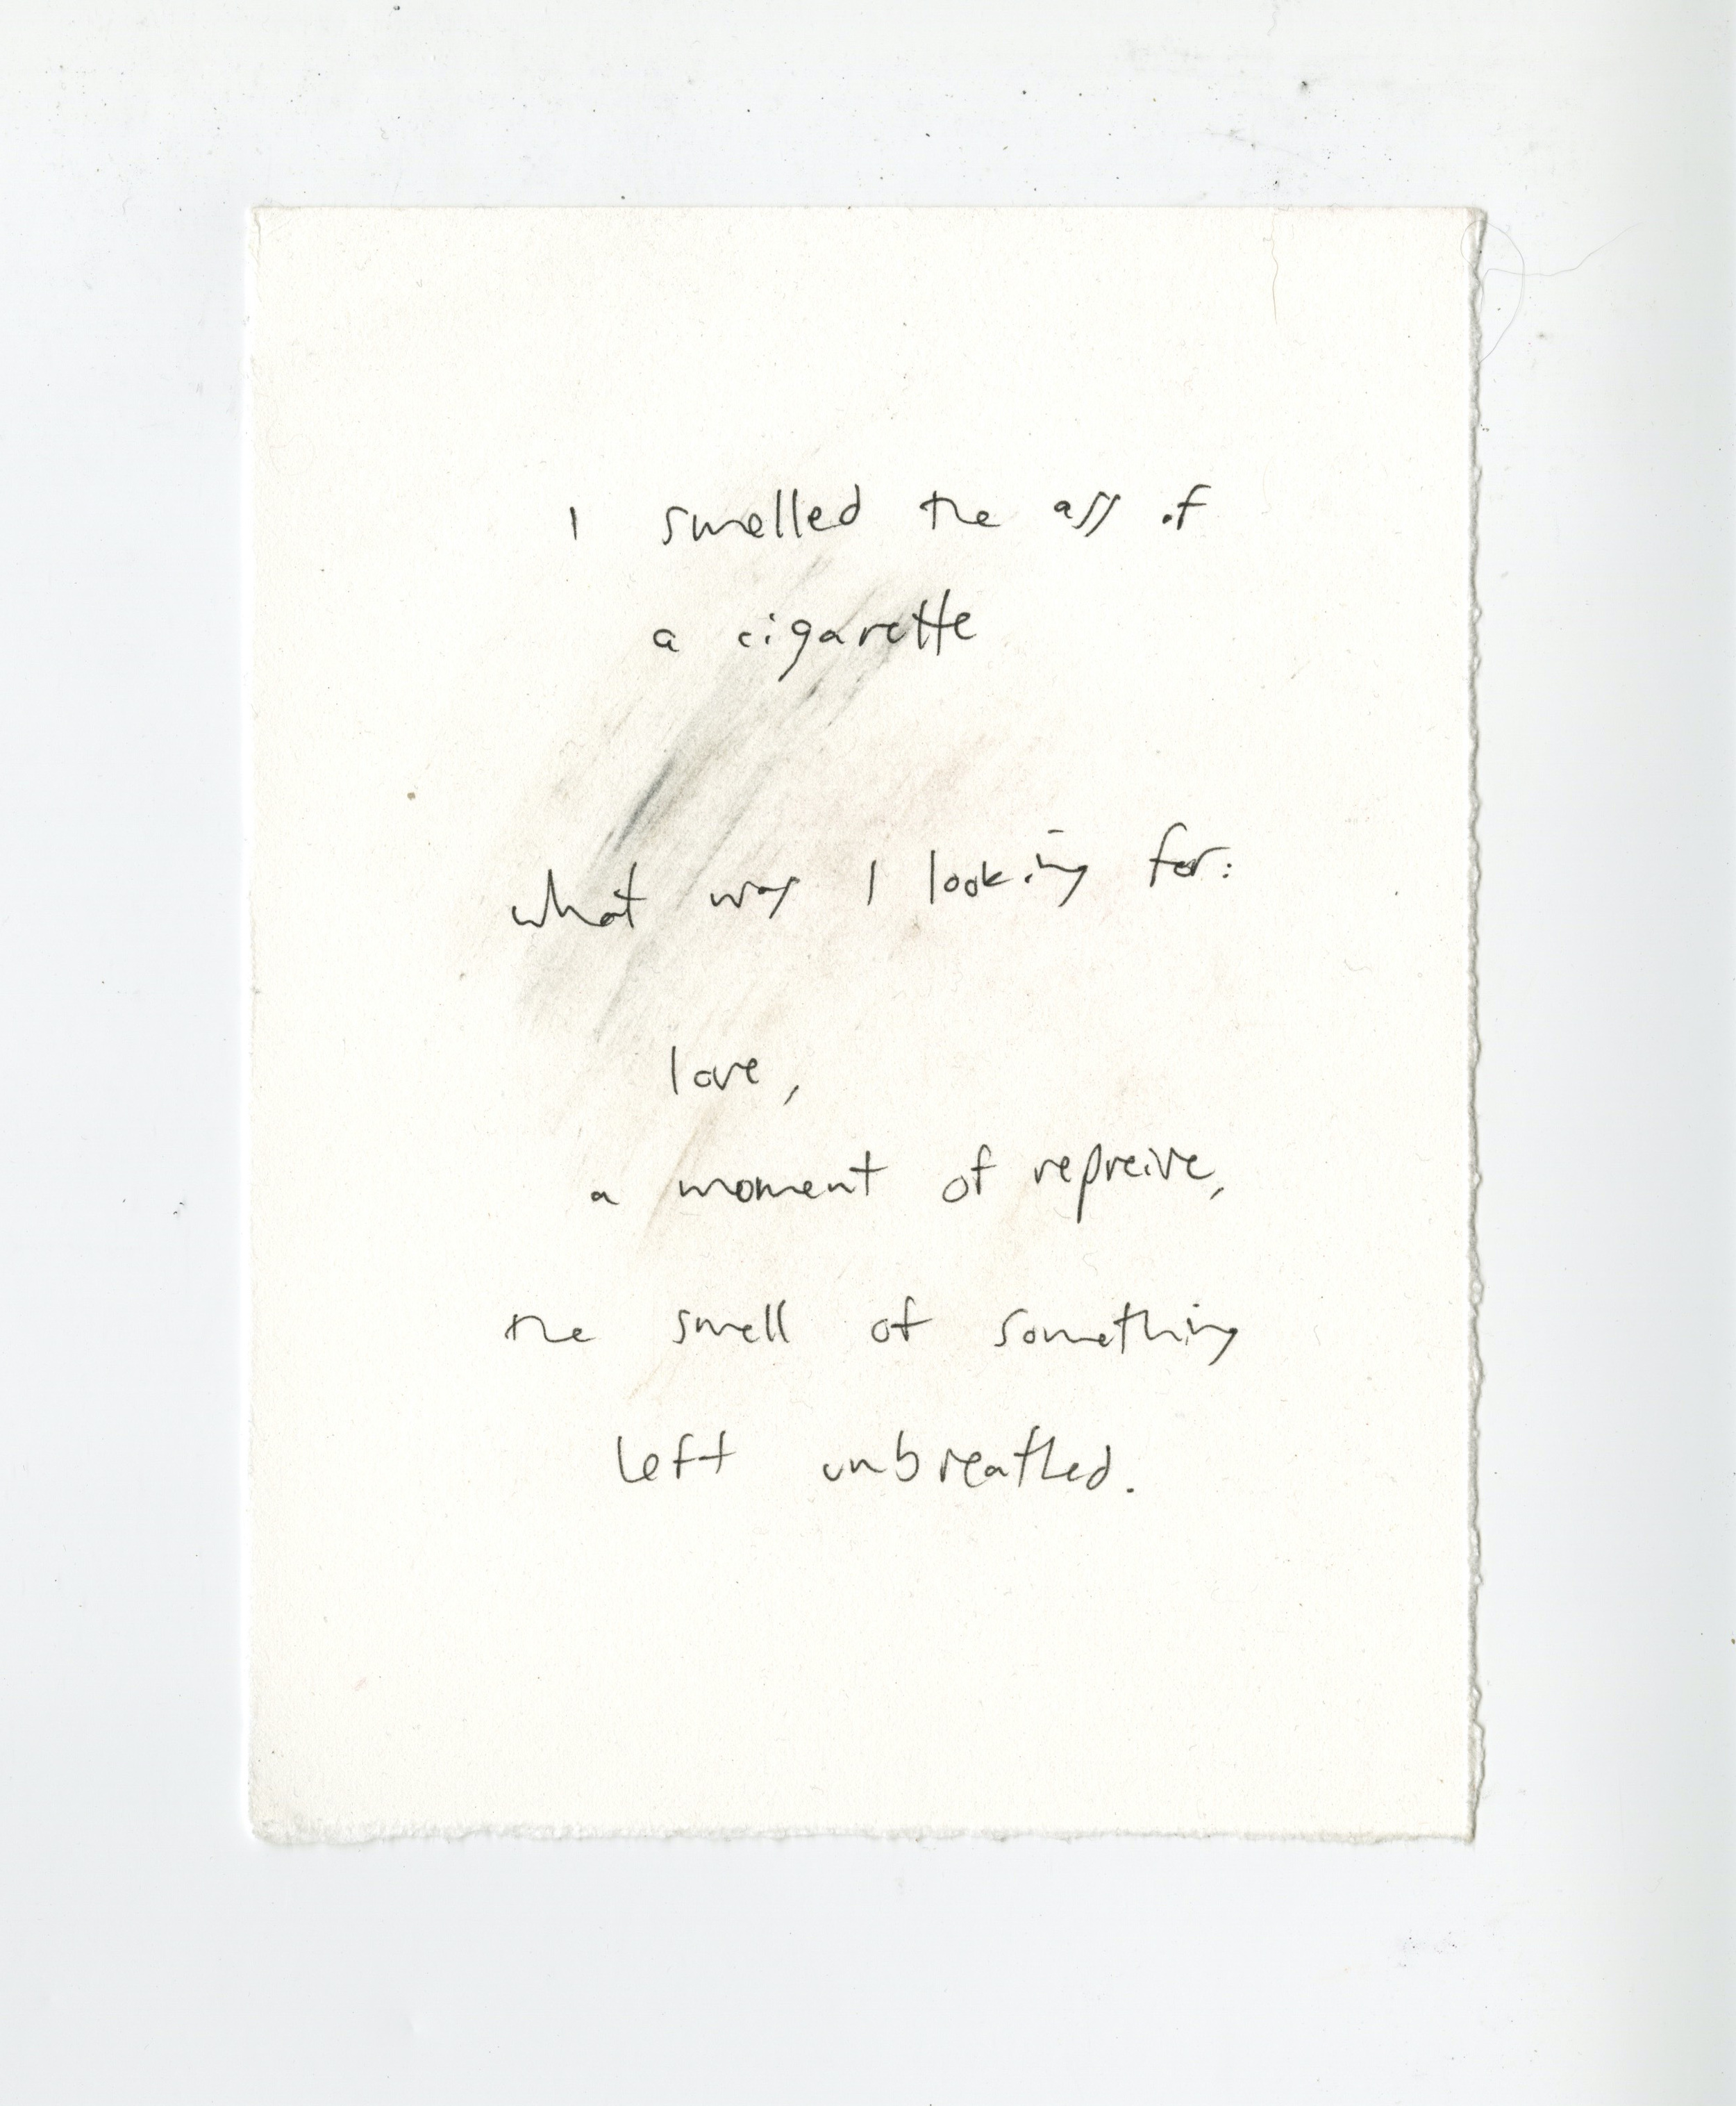 I smelled the ass of
a cigarette
what was I looking for:
love,
a moment of repreive,
the smell of something
left unbreathed.